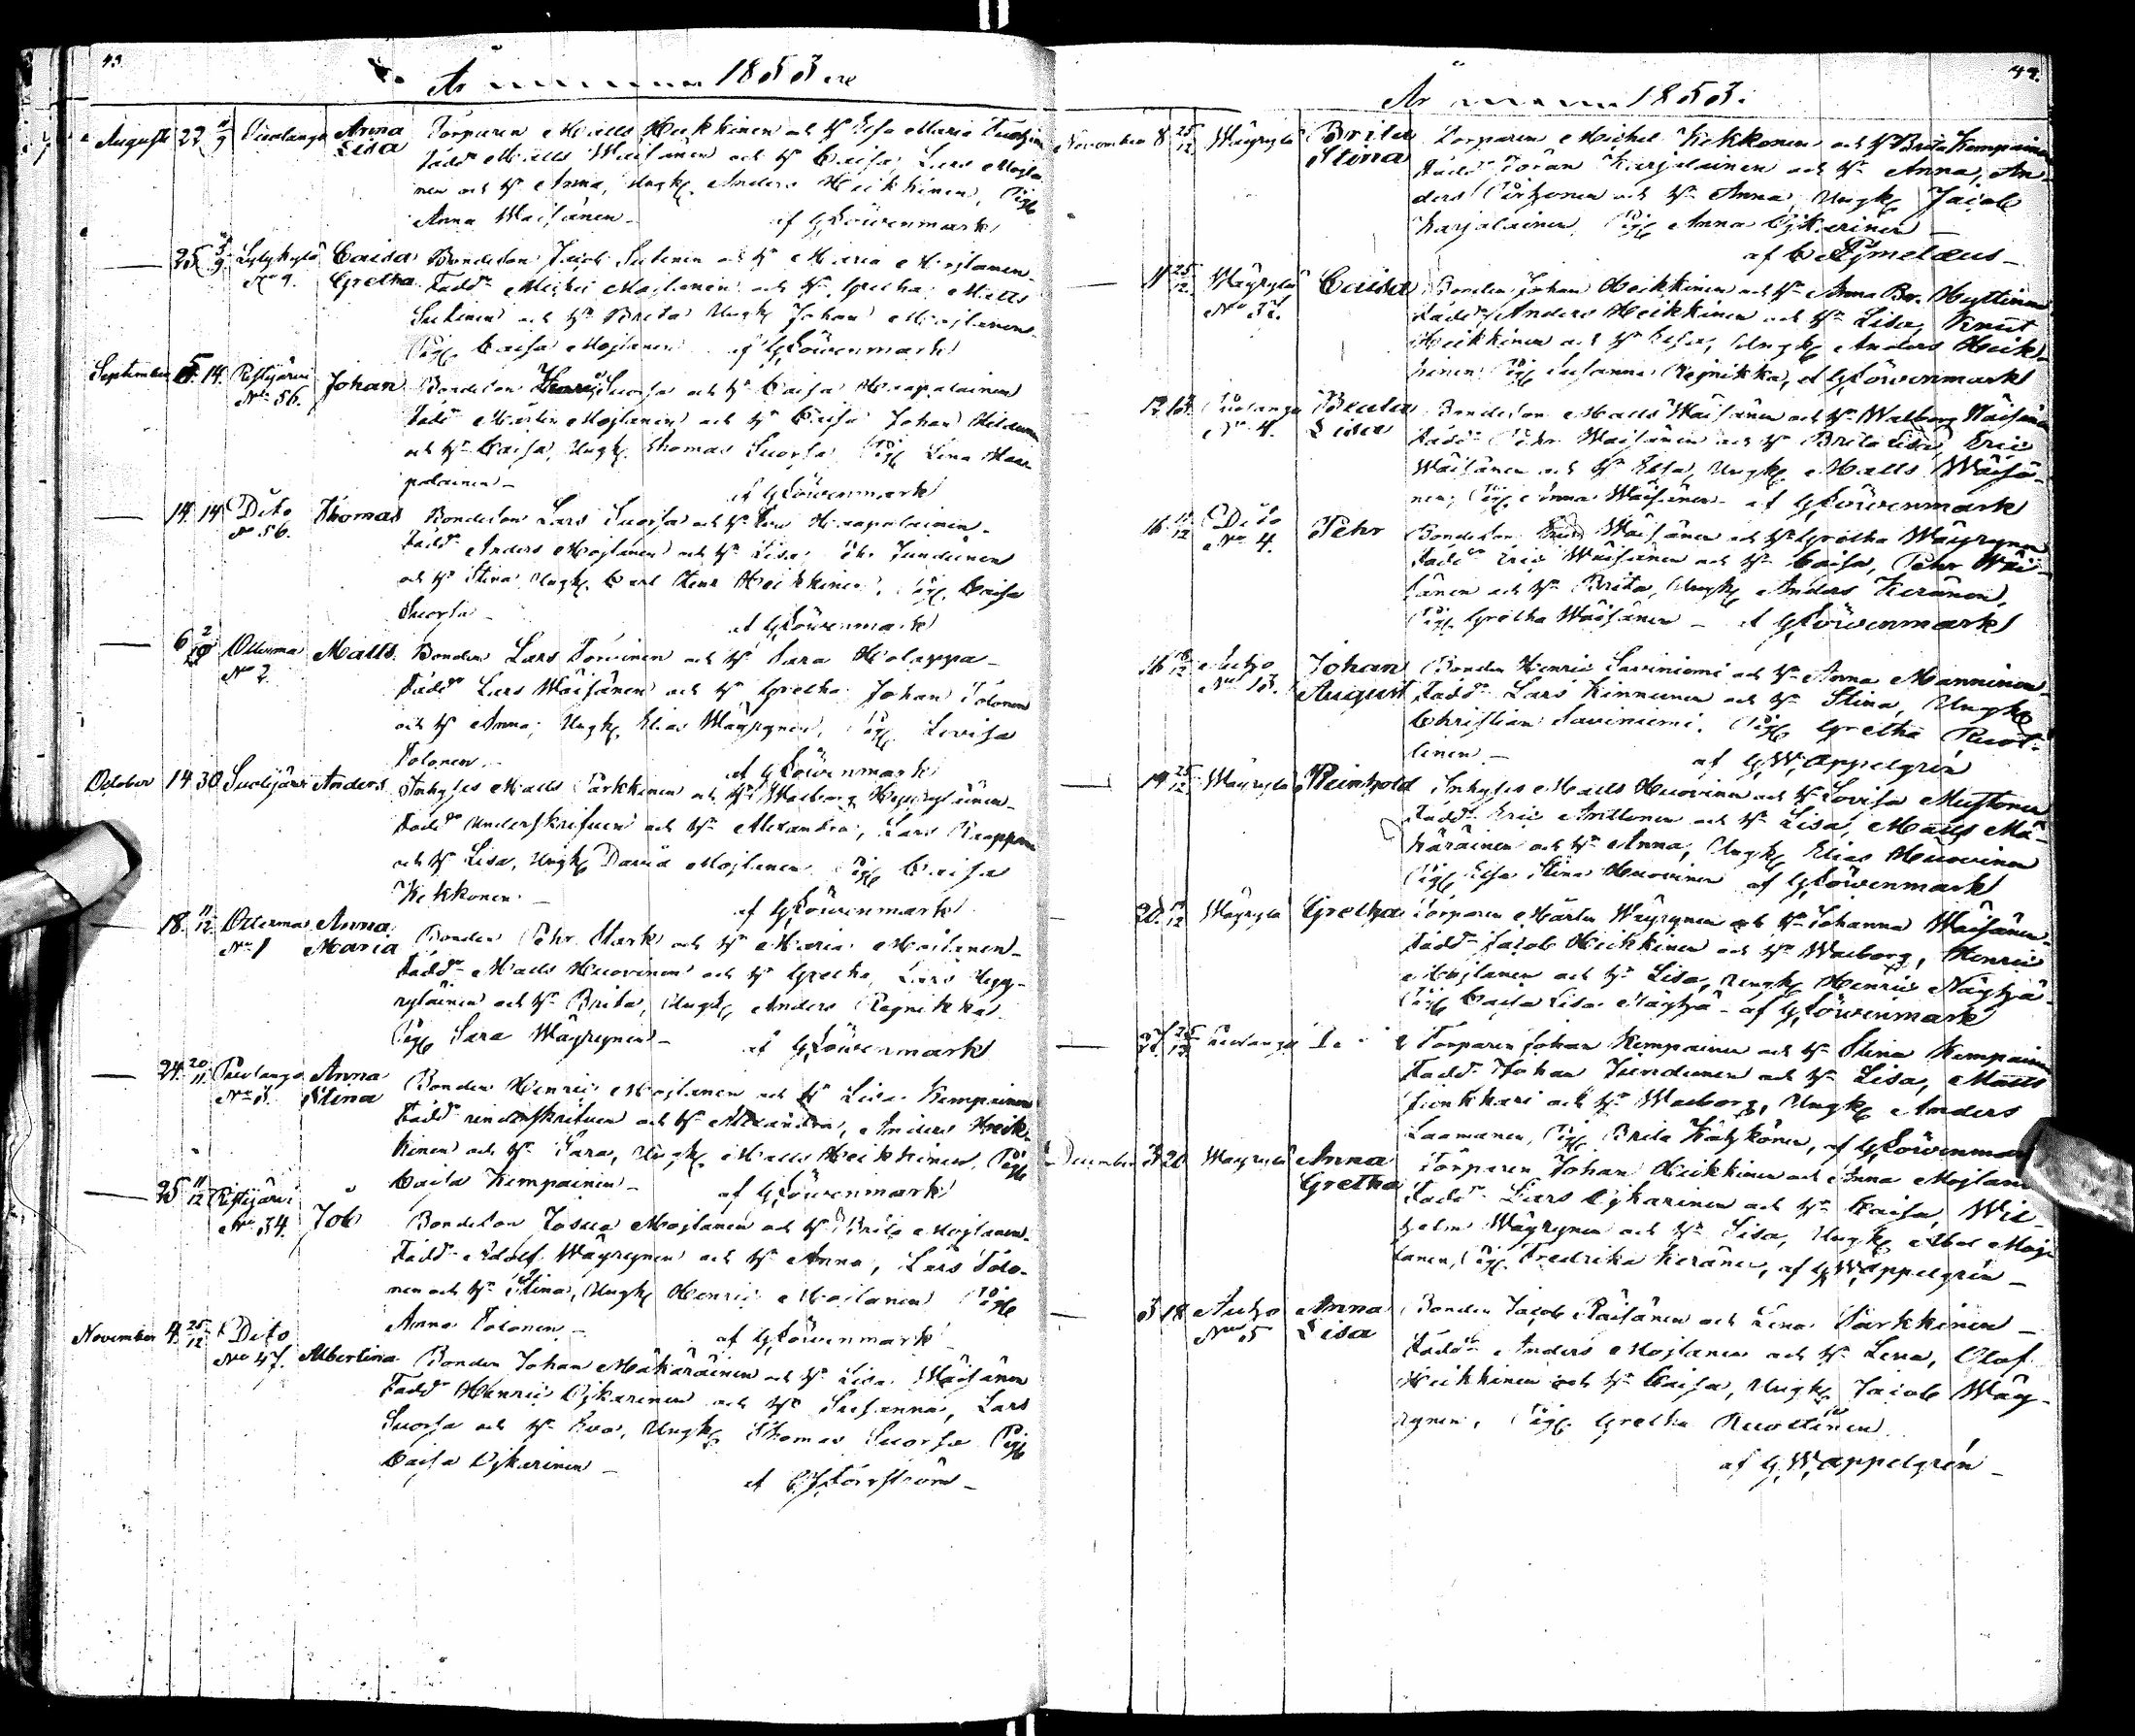 43.
År 1853
Augusti 22 11/9 Puolanga Anna Torparen Matts Heikkinen och H. Elsa Maria
Lisa Fadd. Matts Wäisänen och H. Caisa, Lars Mojla-
nen och H. Anna, Ungk. Anders Heikkinen, Pig.
Anna Wäisänen - af G Löwenmark
25 Caisa Bondeson Jacob Sutinen och H. Maria Mojlanen
No 9. Gretha Fadd. Michel Mojlanen och H. Gretha Matts
Sutinen och H. Brita Ungk. Johan Mojlanen
Pig. Caisa Mojlanen af G Löwenmark
September 5. 14. Ristijärvi Johan Bondeson Suorsa och H. Caisa Haapalainen
No 56. Fadd. Martin Mojlanen och H. Caisa Johan
och H. Caisa, Ungk. Thomas Suorsa Pig. Lena Haa-
palainen - af G Löwenmark
14. 14 Dito Thomas Bondeson Lars Suorsa och H. Haapalainen -
No 56. Fadd. Anders Mojlanen och H. Lisa Juntunen
och H. Stina Ungk. Carl Heikkinen, Pig. Caisa
Suorsa - af G Löwenmark
6 2/10 Otterma Matts. Bonden Lars Torvinen och H. Sara Holappa -
No 2. Fadd. Lars Wäisänen och H. Gretha Johan Tolonen
och H. Anna, Ungk. Elias Wäyrynen, Pig. Lovisa
Tolonen. - af G Löwenmark
October 14 30 Suolijärvi Anders Inhyses Matts Parkkinen och H. Walborg Hepprylainen -
Fadd. Underskrifven och H. Alexandra, Lars
och H. Lisa, Ungk. David Mojlanen Pig. Caisa
Kekkonen - af G Löwenmark
18. 11/12 Otterma Anna Bonden Pehr Stark och H. Maria Mojlanen -
No 1 Maria Fadd. Matts Huovinen och H. Gretha, Lars Hepp-
ryläinen och H. Brita, Ungk. Anders Regnikka
Pig. Sara Wäyrynen - af G Löwenmark
24. 20/11. Puolanga Anna Bonden Henric Mojlanen och H. Lisa Kempainen
Stina Fadd. underskrifven och H. Alexandra, Anders Heik-
kinen och H. Sara, Ungk. Matts Heikkinen, Pig.
Caisa Kempainen - af G Löwenmark
25 11/12 Ristijärvi Job Bondeson Josua Mojlanen och H. Brita Mojlanen.
No 34. Fadd. Adolf Wäyrynen och H. Anna, Lars Tolo-
nen och H. Stina, Ungk. Henric Mojlanen Pig.
Anna Tolonen - af G Löwenmark
November 4. 25/12 Dito Albertina Bonden Johan Mäkäräinen och H. Lisa Wäisänen
No 47. Fadd. Henric Ojkarinen och H. Susanna, Lars
Suorsa och H. Eva, Ungk. Thomas Suorsa Pig.
Caisa Ojkarinen - af
44.
År 1853.
November 8 25/12 Wäyrylä Brita Torparen Michel Kekkonen och H. Brita Kempainen
Stina Fadd. Göran Karjalainen och H. Anna, An-
ders och H. Anna, Ungk. Jacob
Karjalainen, Pig. Anna Ojkarinen -
af C Aejmelæus -
11 25/12 Wäyrylä Caisa Bonden Johan Heikkinen och H. Anna Br. Hyttinen
No 32. Fadd. Anders Heikkinen och H. Lisa, Knut
Heikkinen och H. Elsa, Ungk. Anders Heik-
kinen Pig. Susanna Regnikka, af G Löwenmark
Puolanga Beata Bondeson Matts Wäisänen och H. Walborg Wäisänen
No 4. Lisa Fadd. Pehr Wäisänen och H. Brita Lisa, Eric
Wäisänen och H. Elsa, Ungk. Matts Wäisä-
nen, Pig. Anna Wäisänen - af G Löwenmark
16 11/12 Dito Pehr Bondeson Wäisänen och H. Gretha Wäyrynen
No 4. Fadd. Eric Wäisänen och H. Caisa, Pehr Wäi-
sänen och H. Brita, Ungk. Anders Keränen,
Pig. Gretha Wäisänen - af G Löwenmark
16 Auho Johan Bonden Henric Saviniemi och H. Anna Manninen
No 13. August Fadd. Lars Kinnunen och H. Stina, Ungk.
Christian Saviniemi. Pig. Gretha Ruot-
tinen - af G W Appelgrén
19 25/12 Wäyrylä Reinhold Inhyses Matts Huovinen och H. Lovisa Mustonen
Fadd. Eric Anttonen och H. Lisa, Matts Mä-
käräinen och H. Anna, Ungk. Elias Huovinen
Pig. Elsa Stina Huovinen af G Löwenmark
20. Wäyrylä Gretha Torparen Martin Wäyrynen och H. Johanna Wäisänen -
Fadd. Jacob Heikkinen och H. Walborg, Henric
Mojlanen och H. Lisa, Ungk. Henric Näyhjä -
Pig. Caisa Lisa Näyhjä - af G Löwenmark
Puolanga Torparen Johan Kempainen och H. Stina Kempainen
Fadd. Johan Juntunen och H. Lisa, Matts
och H. Walborg, Ungk. Anders
Laamanen, Pig. Brita af G Löwenmark
December 3 20 Wäyrylä Anna Torparen Johan Heikkinen och Anna Mojlanen
Gretha Fadd. Lars Ojkarinen och H. Caisa, Wil-
helm Wäyrynen och H. Lisa, Ungk. Abel Moj-
lanen, Pig. Fredrika Keränen, af G W Appelgrén -
3 18 Auho Anna Bonden Jacob Räisänen och Lena Parkkinen -
No 5 Lisa Fadd. Anders Mojlanen och H. Lena, Olof
Heikkinen och H. Caisa, Ungk. Jacob Wäy-
rynen, Pig. Gretha Ruottinen
af G W Appelgrén -